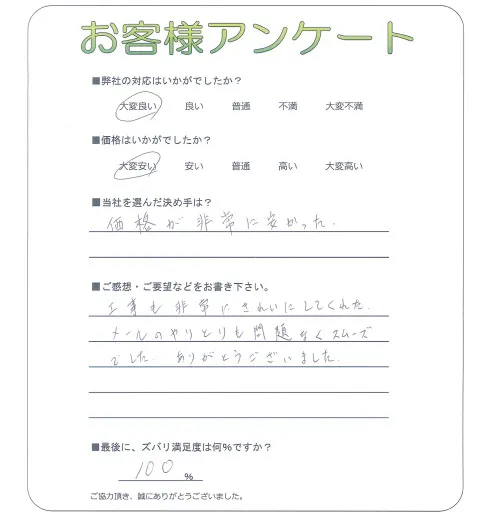 お客様アンケート
■弊社の対応はいかがでしたか？
大変良い 良い 普通 不満 大変不満
■価格はいかがでしたか？
大変安い 安い 普通 高い 大変高い
■当社を選んだ決め手は？
価格が非常に安かった.
■ご感想・ご要望などをお書き下さい。
工事も非常にきれいにしてくれた.
メールのやりとりも問題なくスムーズ
でした. ありがとうございました.
■最後に、ズバリ満足度は何％ですか？
100 ％
ご協力頂き、誠にありがとうございました。